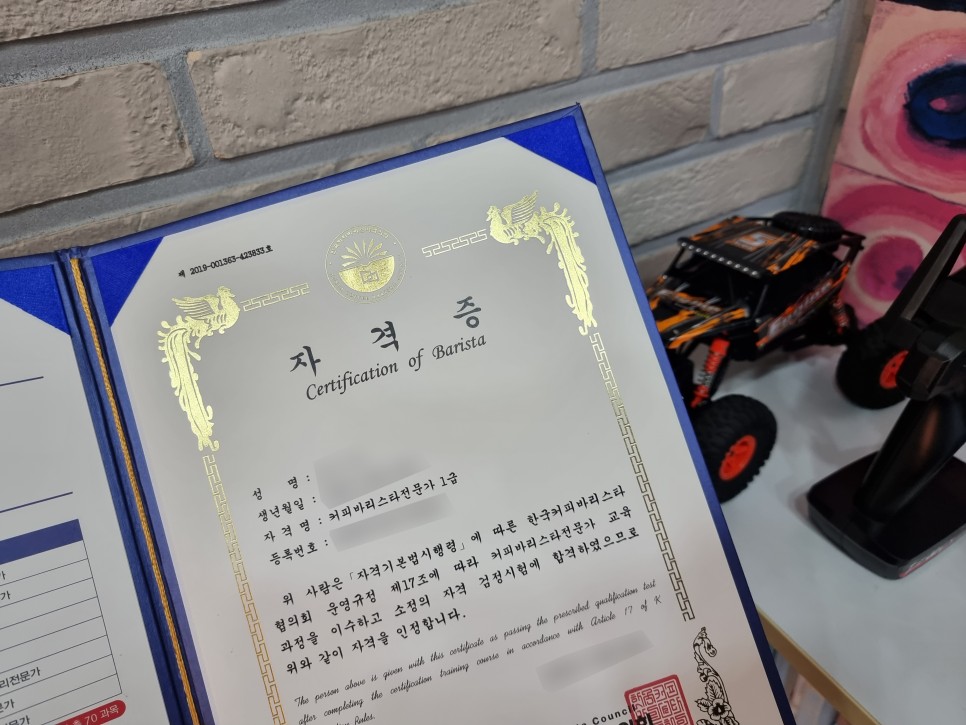 제 2019-001363-423833 호
자 격 증
Certification of Barista
성 명 :
생년월일 :
자 격 명 : 커피바리스타전문가 1급
등록번호 :
위 사람은「자격기본법시행령」에 따른 한국커피바리스타
협의회 운영규정 제17조에 따라 커피바리스타전문가 교육
과정을 이수하고 소정의 자격 검정시험에 합격하였으므로
위와 같이 자격을 인정합니다.
The person above is given with this certificate as passing the prescribed qualification test
after completing the certification training course in accordance with Article 17 of K
Rules.
Council
가
가
문가
리전문가
문가
70 과목